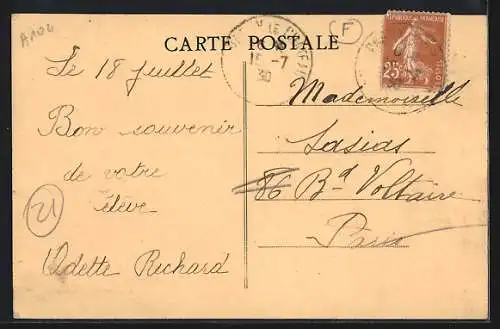 A104
CARTE POSTALE
F
REPUBLIQUE FRANÇAISE
25c
15 -7
30
Le 18 juillet
Bon souvenir
de votre
élève
Odette Richard
21
Mademoiselle
Lasias
86 Bd Voltaire
Paris